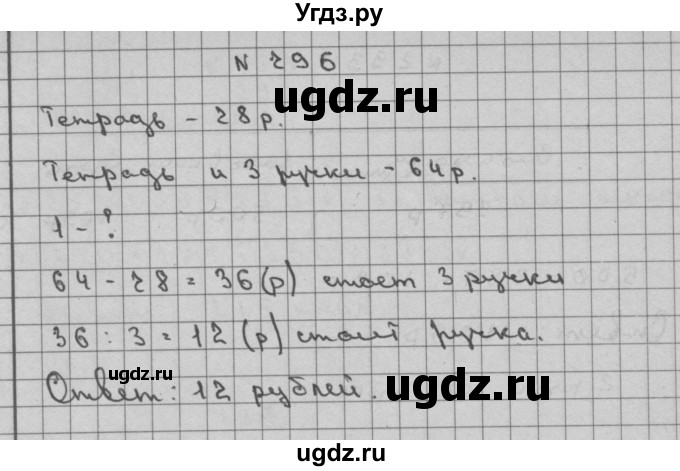 Угдз.ру
N 296
ugdz.ru
Тетрадь - 28 р.
Тетрадь и 3 ручки - 64 р.
1 - ?
64 - 28 = 36 (р) стоят 3 ручки
36 : 3 = 12 (р) стоит ручка.
ugdz.ru
Ответ: 12 рублей.
ugdz.ru
ugdz.ru